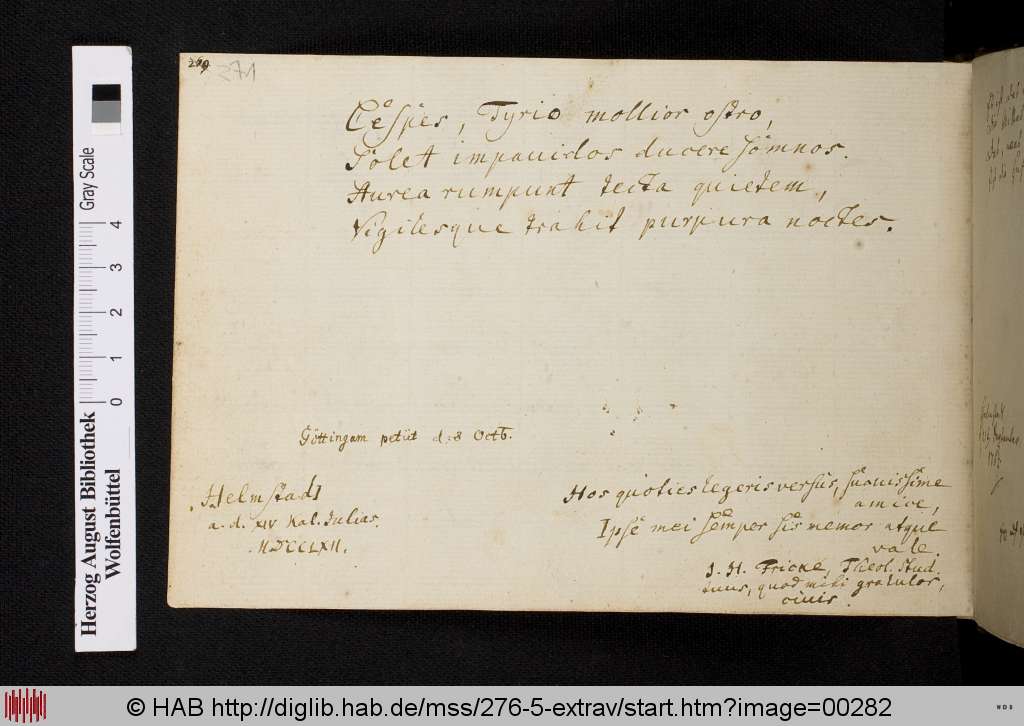 269 271
Cespes, Tyrio mollior ostro,
Solet impauidos ducere somnos.
Aurea rumpunt tecta quietem,
Vigilesque trahit purpura noctes.
Göttingam petiit d. 8 Octb.
Helmstadi
a. d. XIV Kal. Julias.
MDCCLXII.
Hos quoties legeris versus, suauissime
amice,
Ipse mei semper sis memor atque
vale.
J. H. Fricke, Theol. Stud.
quod mihi gratulor,
ciuis.
Herzog August Bibliothek
Wolfenbüttel
Gray Scale
0 1 2 3 4
© HAB http://diglib.hab.de/mss/276-5-extrav/start.htm?image=00282